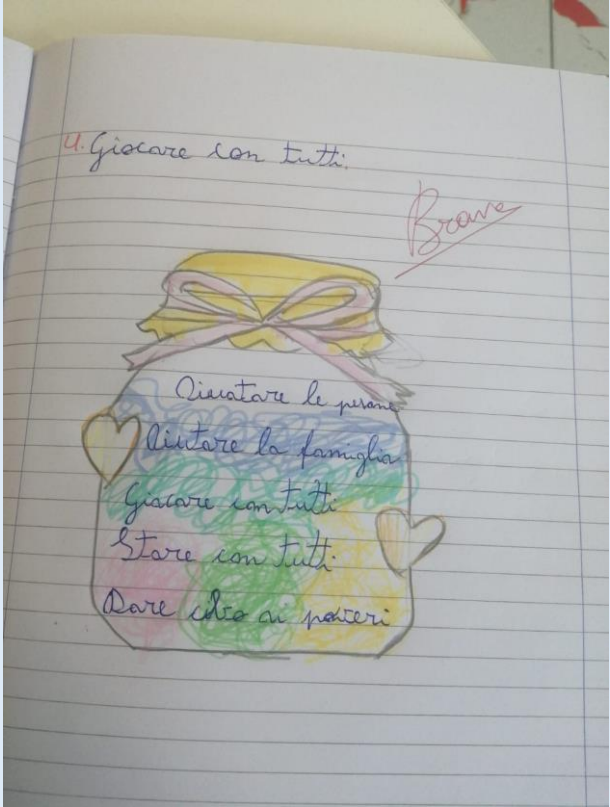 4. Giocare con tutti.
Brava
le persone
Aiutare la famiglia
Giocare con tutti
Stare con tutti
Dare cibo ai poveri